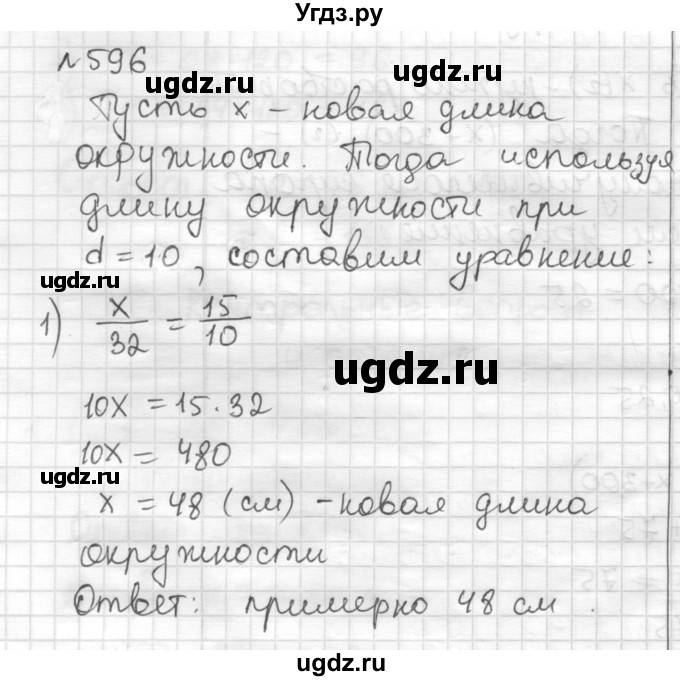 Угдз.ру
№596
ugdz.ru ugdz.ru
Пусть x – новая длина
окружности. Тогда используя
длину окружности при
d = 10, составим уравнение:
ugdz.ru
1) x/32 = 15/10
ugdz.ru
10x = 15·32
10x = 480
ugdz.ru ugdz.ru
x = 48 (см) – новая длина
окружности
Ответ: примерно 48 см.
ugdz.ru ugdz.ru
ugdz.ru